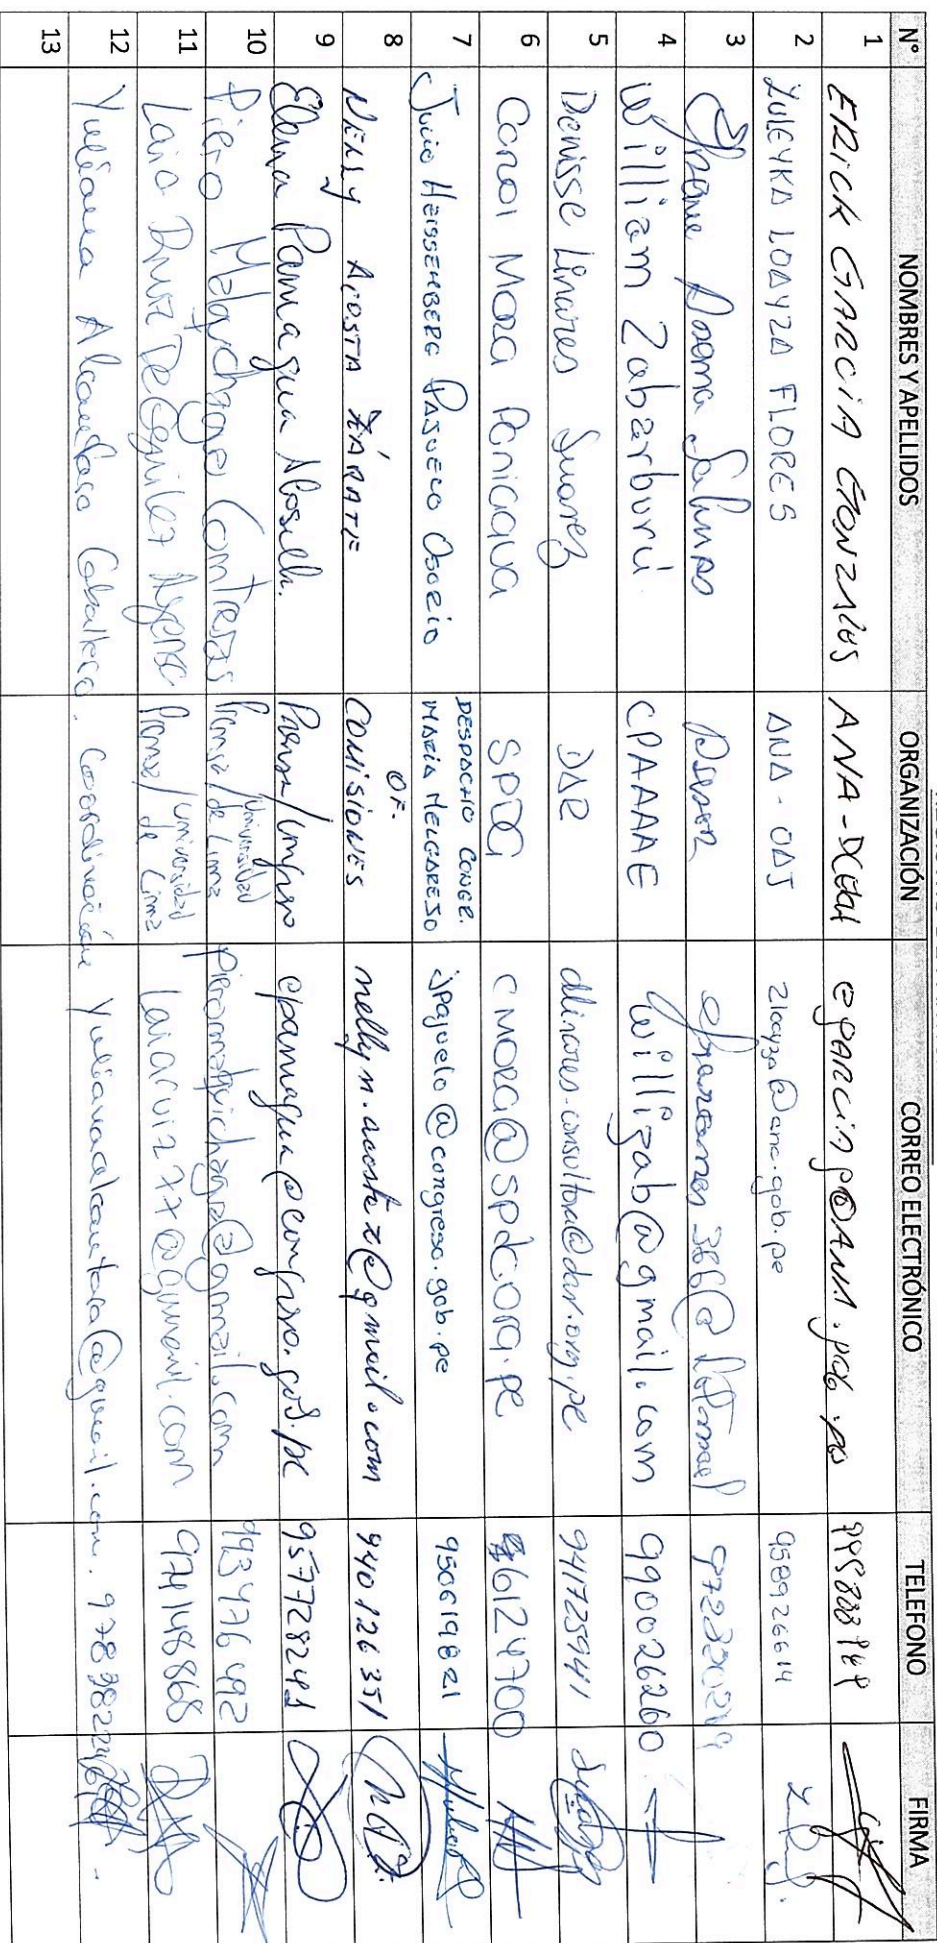 N° NOMBRES Y APELLIDOS ORGANIZACIÓN CORREO ELECTRÓNICO TELEFONO FIRMA
1 ERICK GARCIA GONZALES ANA - 
2 ZULEYKA LOAYZA FLORES ANA - OAJ zloayza@ana.gob.pe 958926614
3 Salinas Asesor
4 William Zabarburú CPAAAAE willizab@gmail.com 990026260
5 Denisse Linares Suarez DAR dlinares.consultora@dar.org.pe 941725941
6 Carol Mora Paniagua SPDA cmora@spda.org.pe 6124700
7 Julio Heissenberg Pajuelo Osorio DESPACHO CONGR. MARÍA MELGAREJO jpajuelo@congreso.gob.pe 950619821
8 NELLY ACOSTA ZÁRATE OF. COMISIONES nellyn.acostaz@gmail.com 940126351
9 Elena Paniagua Prensa/Congreso epaniagua@congreso.gob.pe 957728241
10 Piero Melquichagua Contreras Prensa/Universidad de Lima 993476492
11 Laia Ruiz De Prensa/Universidad de Lima laiaruiz77@gmail.com 974148868
12 Yuliana Alcantara Caballero. Coordinación yulianaalcantara@gmail.com.
13